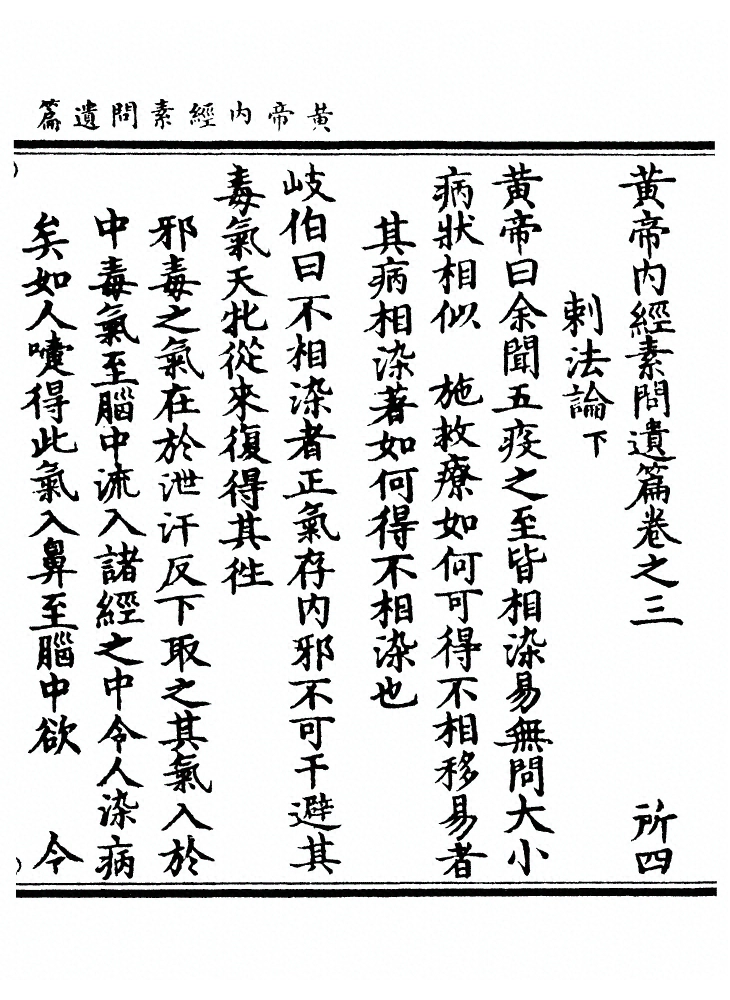 黃帝內經素問遺篇
黃帝內經素問遺篇卷之三 所四
刺法論下
黃帝曰余聞五疫之至皆相染易無問大小
病狀相似 施救療如何可得不相移易者
其病相染著如何得不相染也
岐伯曰不相染者正氣存內邪不可干避其
毒氣天牝從來復得其徃
邪毒之氣在於泄汗反下取之其氣入於
中毒氣至腦中流入諸經之中令人染病
矣如人嚏得此氣入鼻至腦中欲 令